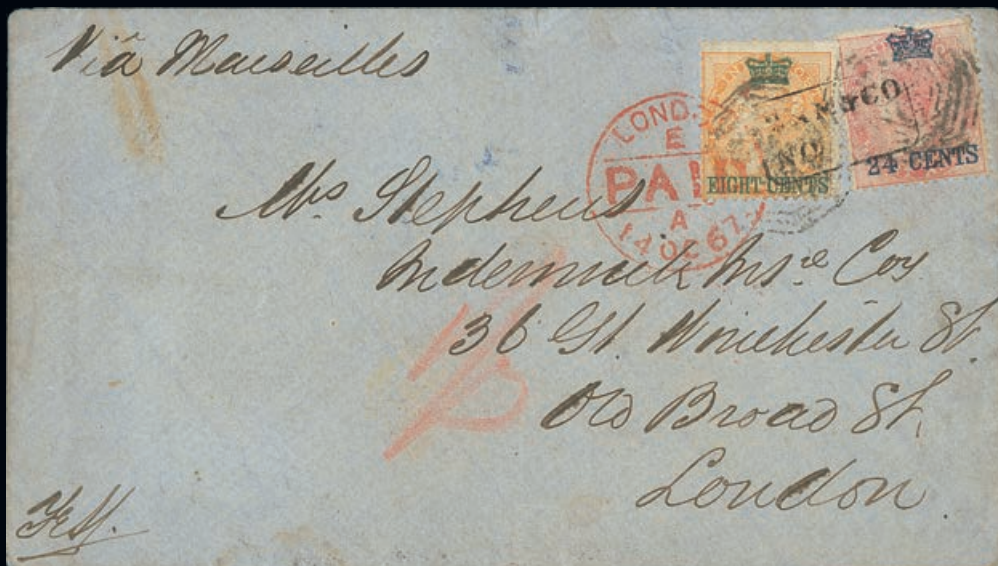 Via Marseilles
LOND
E
PAI
A
14 OC 67
& CO
NO
EIGHT CENTS
24 CENTS
Stephens
Indemnite Insce Coy
36 Gt. Winchester St.
Old Broad St.
London